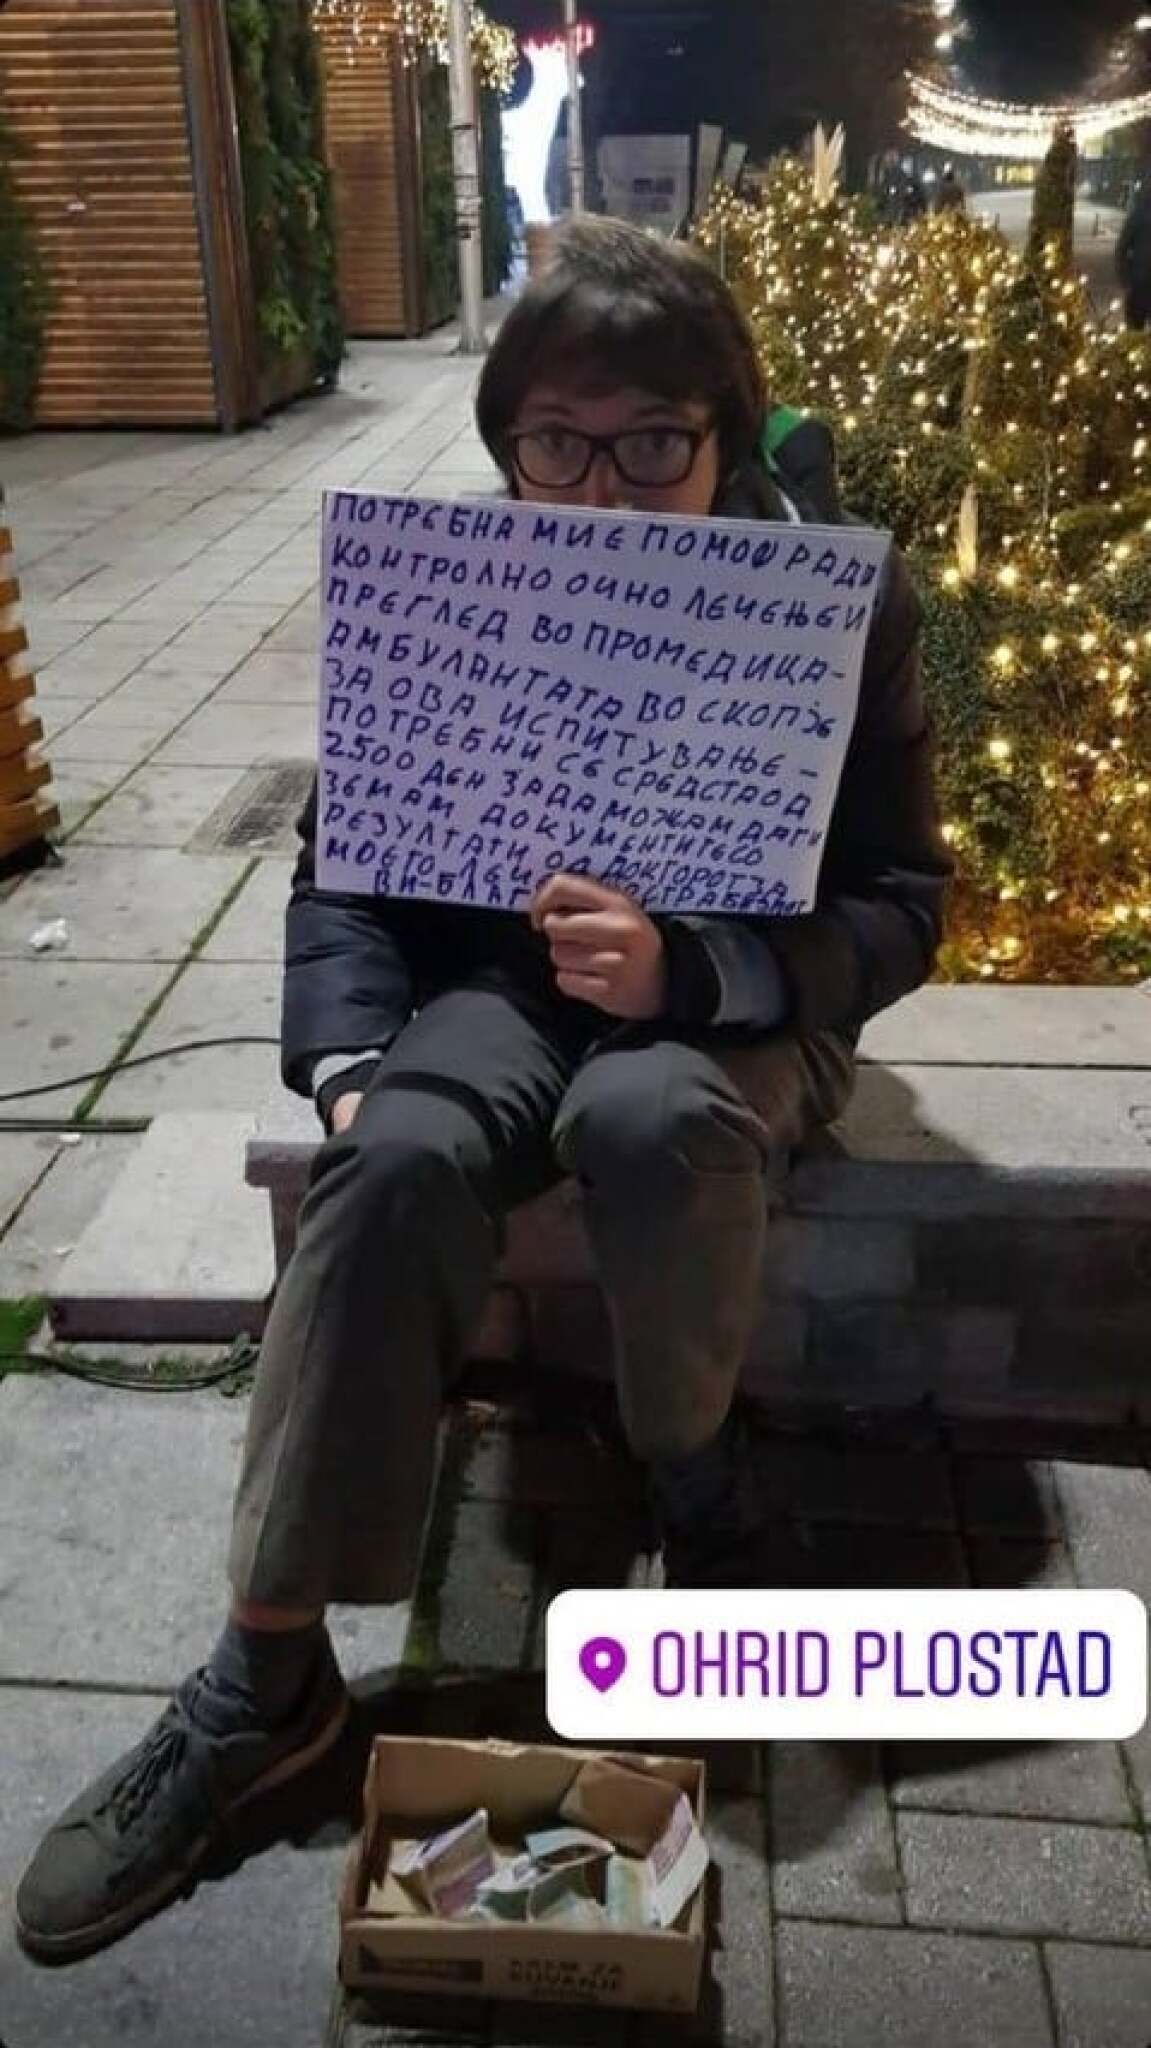 ПОТРЕБНА МИ Е ПОМОШ РАДИ
КОНТРОЛНО ОЧНО ЛЕЧЕЊЕ И
ПРЕГЛЕД ВО ПРОМЕДИКА-
АМБУЛАНТАТА ВО СКОПЈЕ
ЗА ОВА ИСПИТУВАЊЕ -
ПОТРЕБНИ СЕ СРЕДСТВА ОД
2500 ДЕН ЗА ДА МОЖАМ ДА ГИ
ЗЕМАМ ДОКУМЕНТИТЕ СО
РЕЗУЛТАТИ ОД ДОКТОРОТ ЗА
МОЕТО
ВИ-БЛАГ
OHRID PLOSTAD